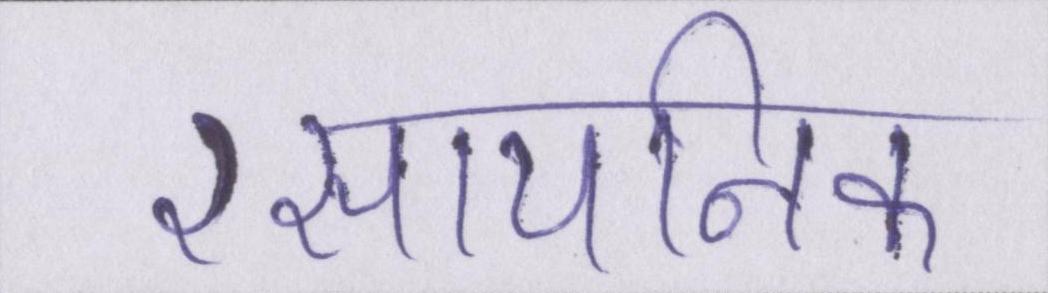 रसायनिक